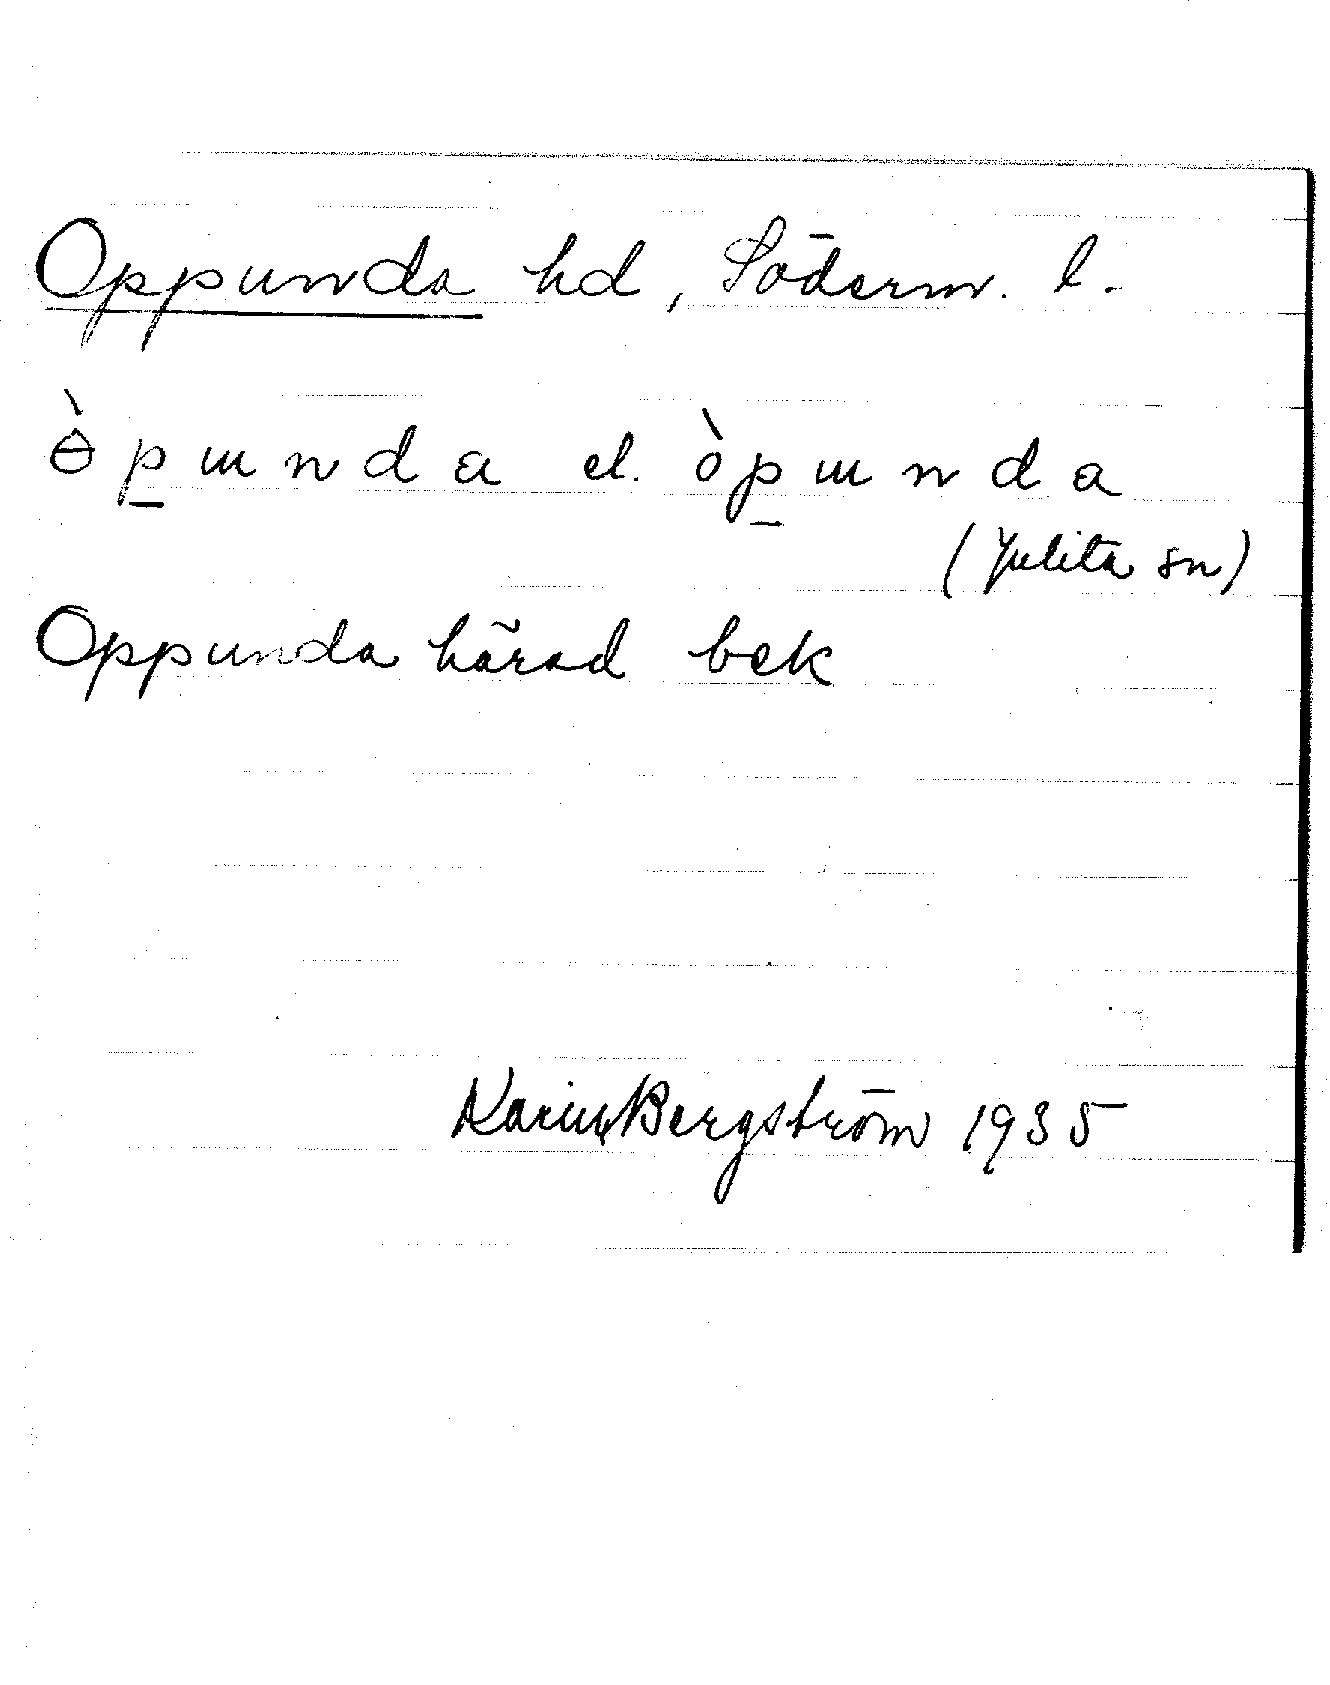 Oppunda hd, Söderm. l.
ɵ̀p̲ɯnda el. òp̲ɯnda
(Julita sn)
Oppunda härad bek
Karin Bergström 1935